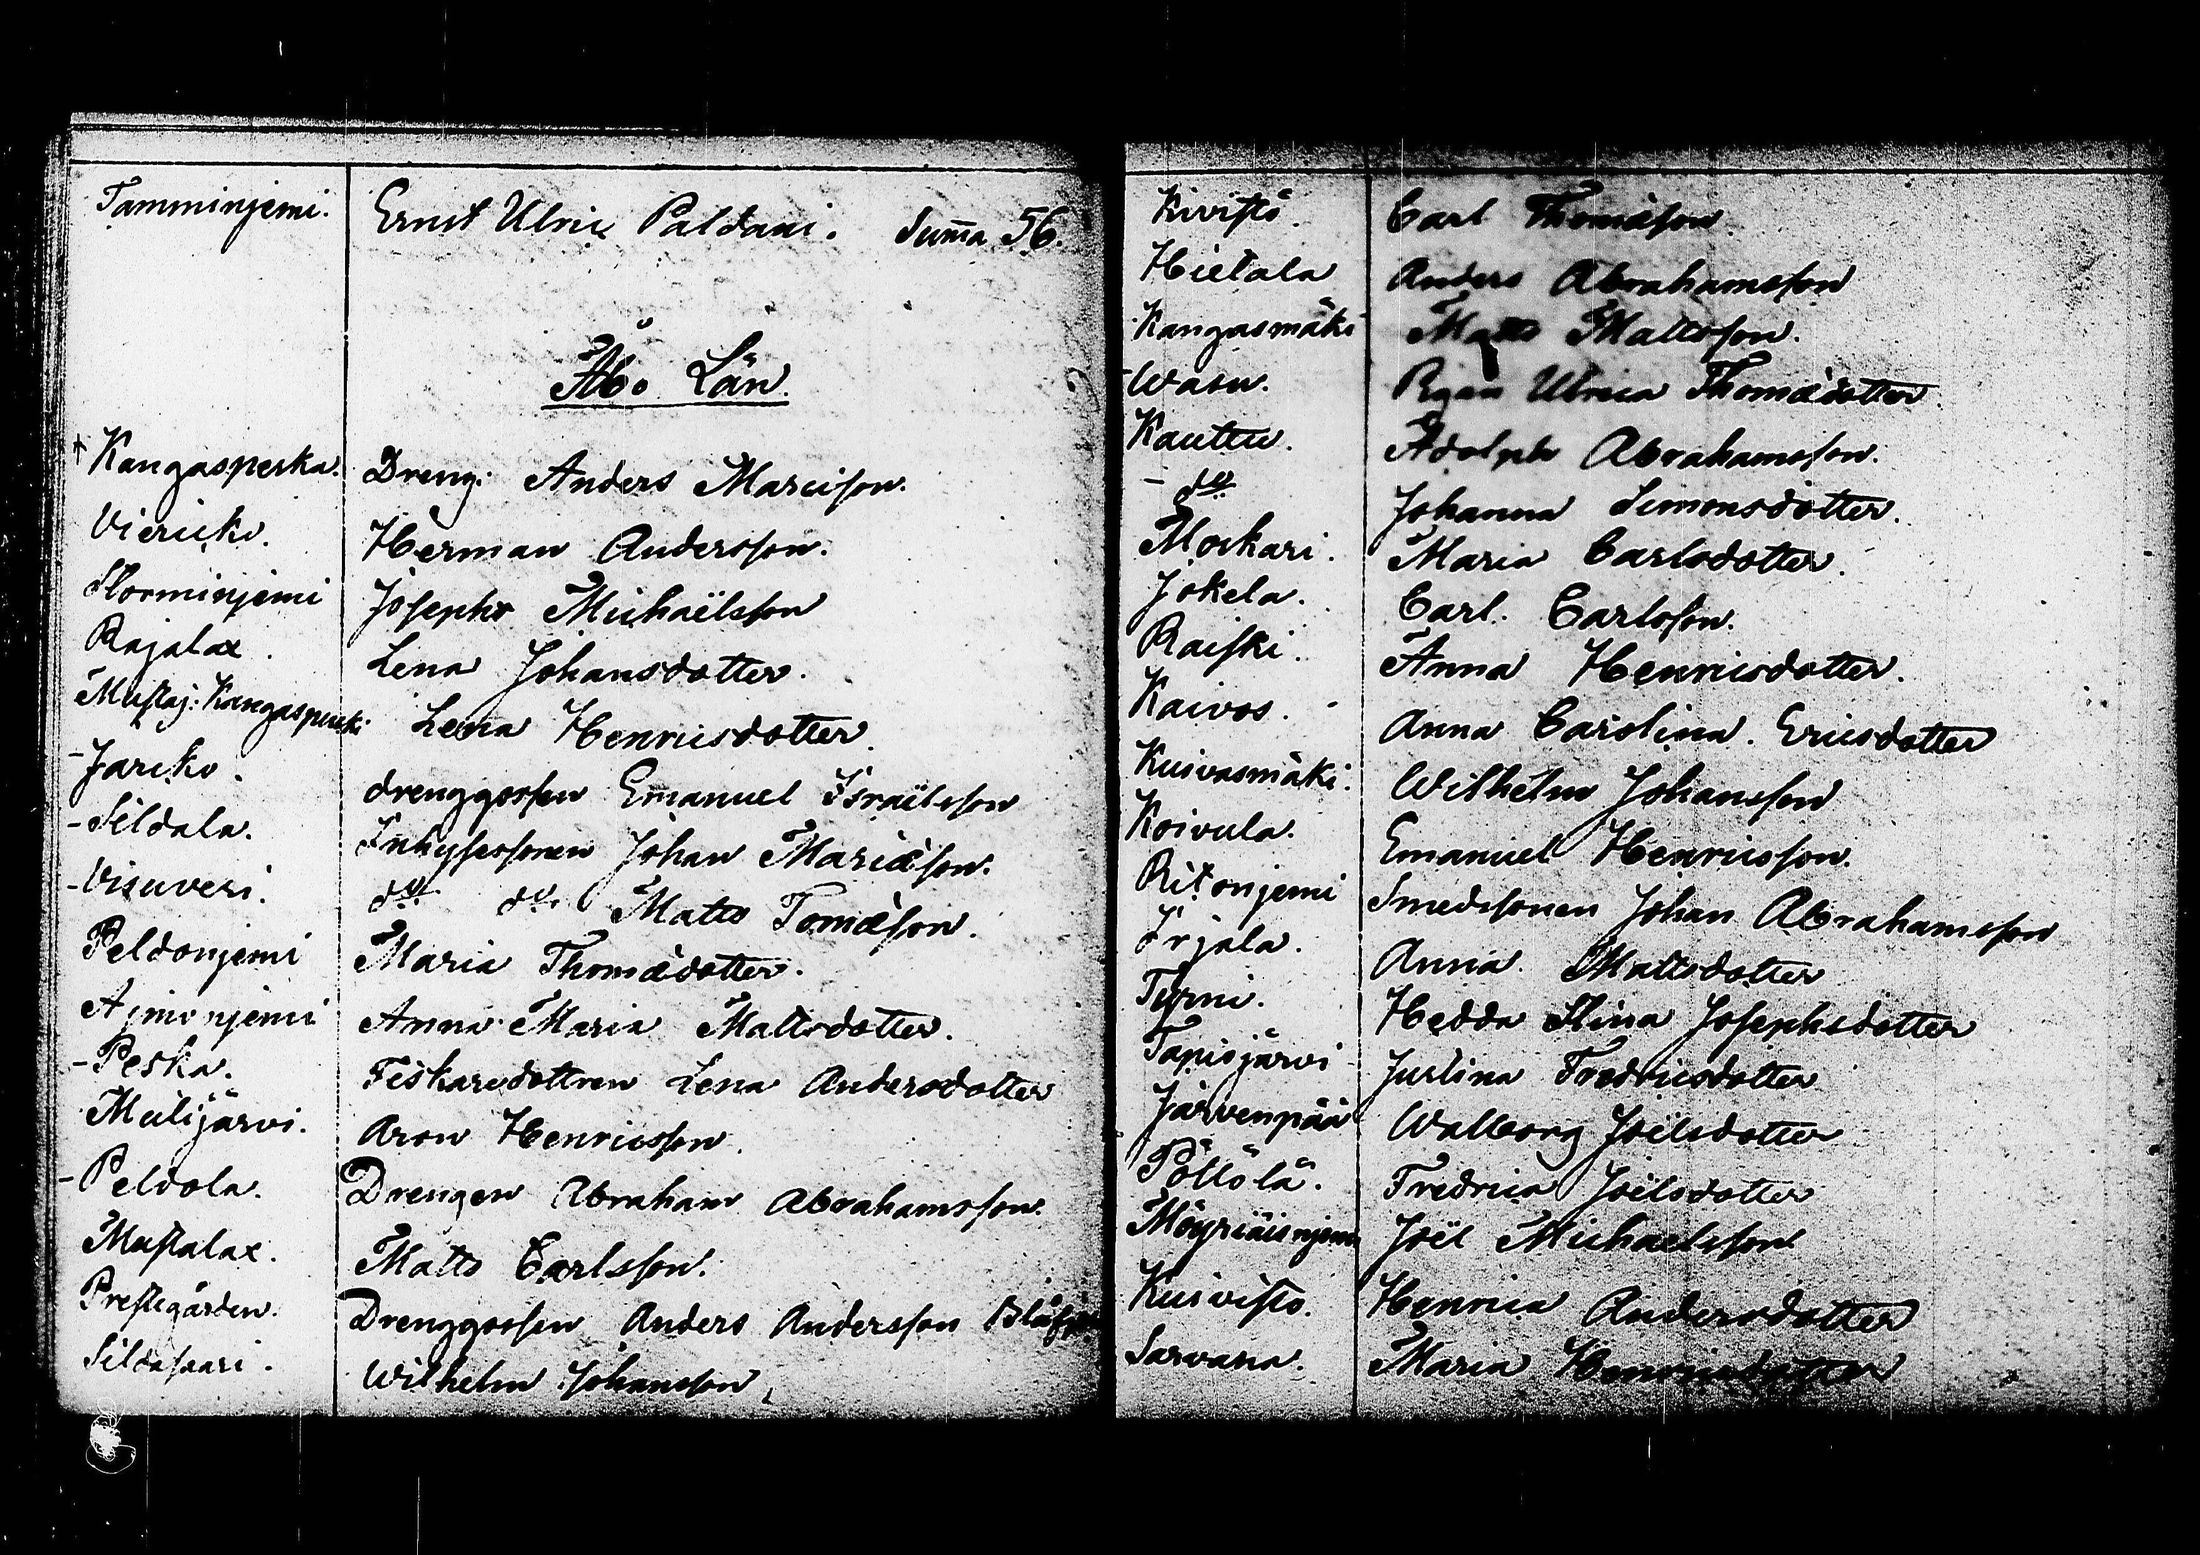 Tamminjemi. Ernst Ulric Paldani. Suma 56.
Åbo Län.
Kangasperka. Dreng: Anders Marcison.
Viericko. Herman Andersson.
Storminjemi Josephr Michaëlsson
Rajalax. Lena Johansdotter.
Mustaj: Lena Henricsdotter.
- Jaricko. drenggossen Emanuel Israëlsson
- Sildala. Inhysessonen Johan Mariæson.
- Visuveri. do do Matts Tomæson.
Peldonjemi Maria Thomædotter.
Ajmonjemi Anna Maria Mattsdotter.
- Peska. Fiskaredottren Lena Andersdotter
Mulijärvi. Aron Henricsson.
- Peldola. Drengen Abraham Abrahamsson.
Mustalax. Matts Carlsson.
Prestegården. Drenggossen Anders Andersson
Sildasaari. Wilhelm Johansson
Kivistö. Carl Thomæson
Hietala Anders Abrahamsson
Kangasmäki Matts Mattsson.
- Wasu. Ulrica Thomædotter
Kauttu. Adolph Abrahamsson.
- do Johanna Simonsdotter.
Moskari. Maria Carlsdotter.
Jokela. Carl. Carlsson.
Raiski. Anna Henricsdotter.
Kaivos. - Anna Carolina. Ericsdotter
Kuivasmäki. Wilhelm Johansson
Koivula. Emanuel Henricsson.
Ritonjemi Smedssonen Johan Abrahamsson
Irjala. Anna Mattsdotter
Tyrni. Hedda Stina Josephsdotter
Tapisjärvi Justina Fredricsdotter
Järvenpää Walborg Joëlsdotter
Pöllölä. Fredrica Joëlsdotter
Joël Michaelsson
Kuivisto. Henrica Andersdotter
Sarvana. Maria Henricsdotter